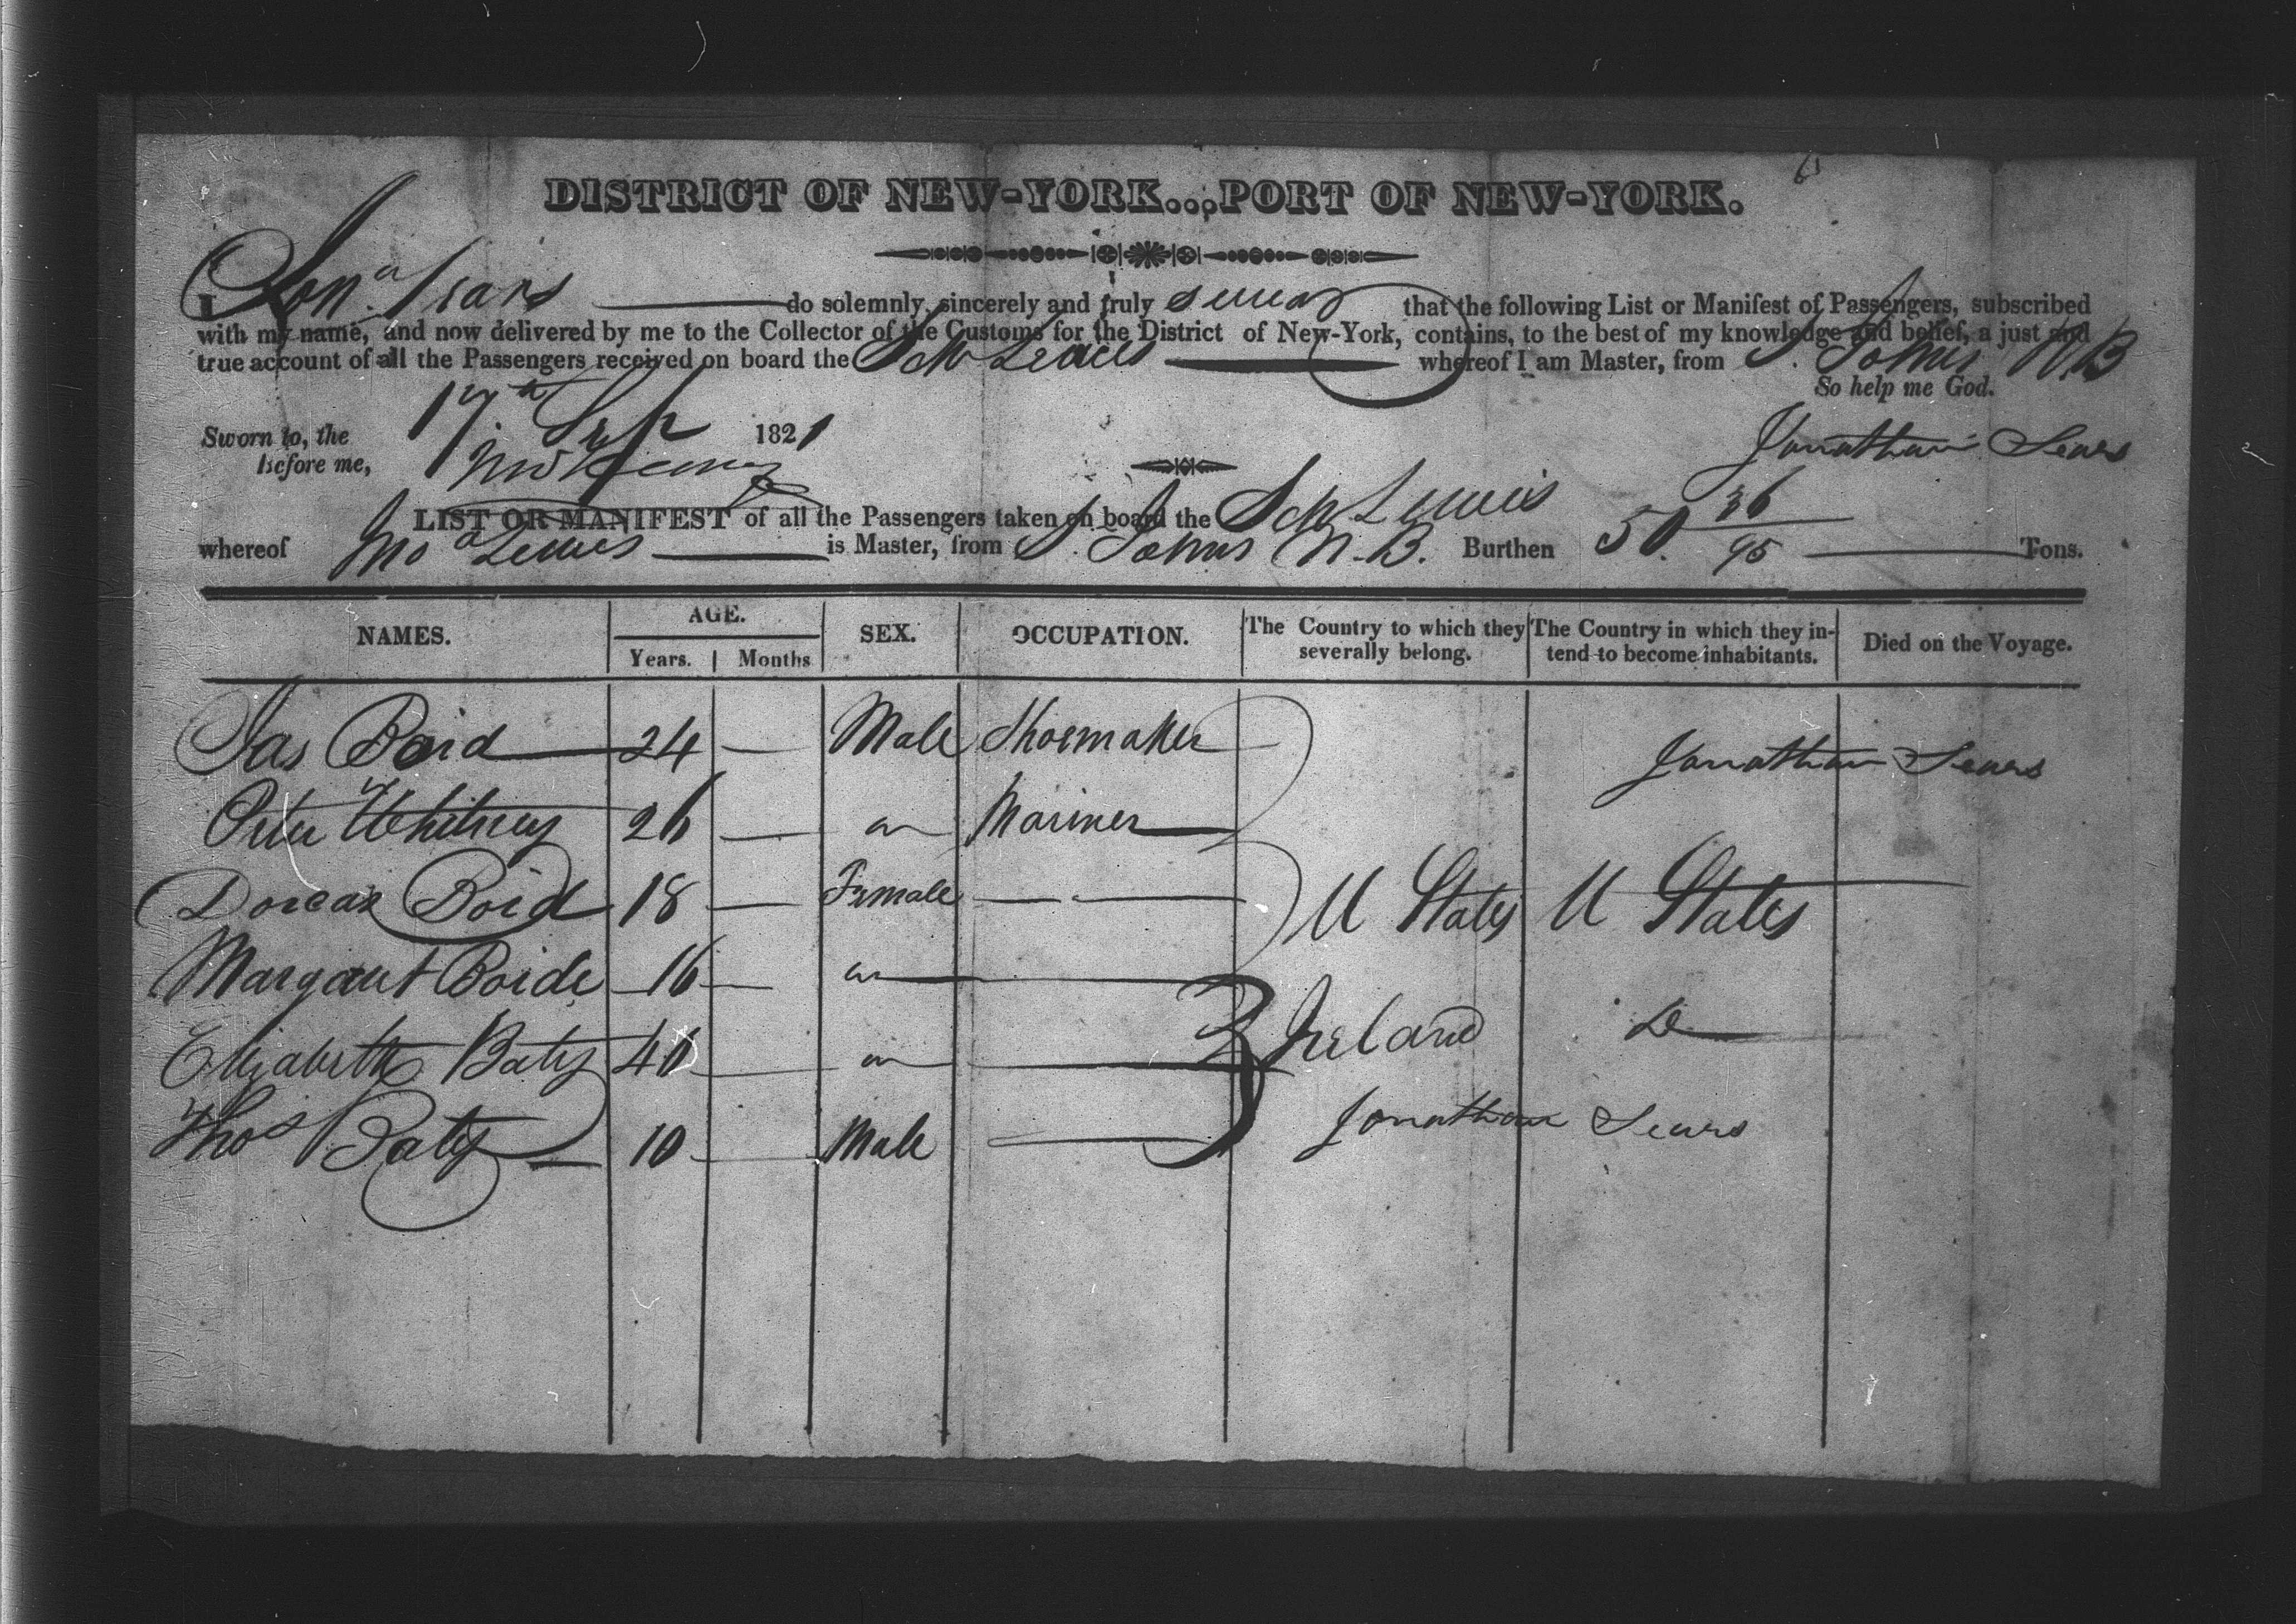 DISTRICT OF NEW-YORK...PORT OF NEW-YORK.
I, Jona Sears do solemnly, sincerely and truly swear that the following List or Manifest of Passengers, subscribed
with my name, and now delivered by me to the Collector of the Customs for the District of New-York, contains, to the best of my knowledge and belief, a just and
true account of all the Passengers received on board the Sch Lewis whereof I am Master, from St. Johns N.B
So help me God.
Sworn to, the 17th Sep 1821
before me,
Jonathan Sears
LIST OR MANIFEST of all the Passengers taken on board the Sch Lewis
whereof is Master, from St. Johns N.B. Burthen 50 36/95 Tons.
NAMES. AGE. SEX. OCCUPATION. The Country to which they severally belong. The Country in which they intend to become inhabitants. Died on the Voyage.
Years. Months
Jas Boid 24 — Male Shoemaker
Jonathan Sears
Peter Whitney 26 — Mariner
Dorcas Boid 18 — Female — — U States U States
Margaret Boide 16 —
Elizabeth Baty 40 Ireland Do
Thos Baty 10 Male
Jonathan Sears